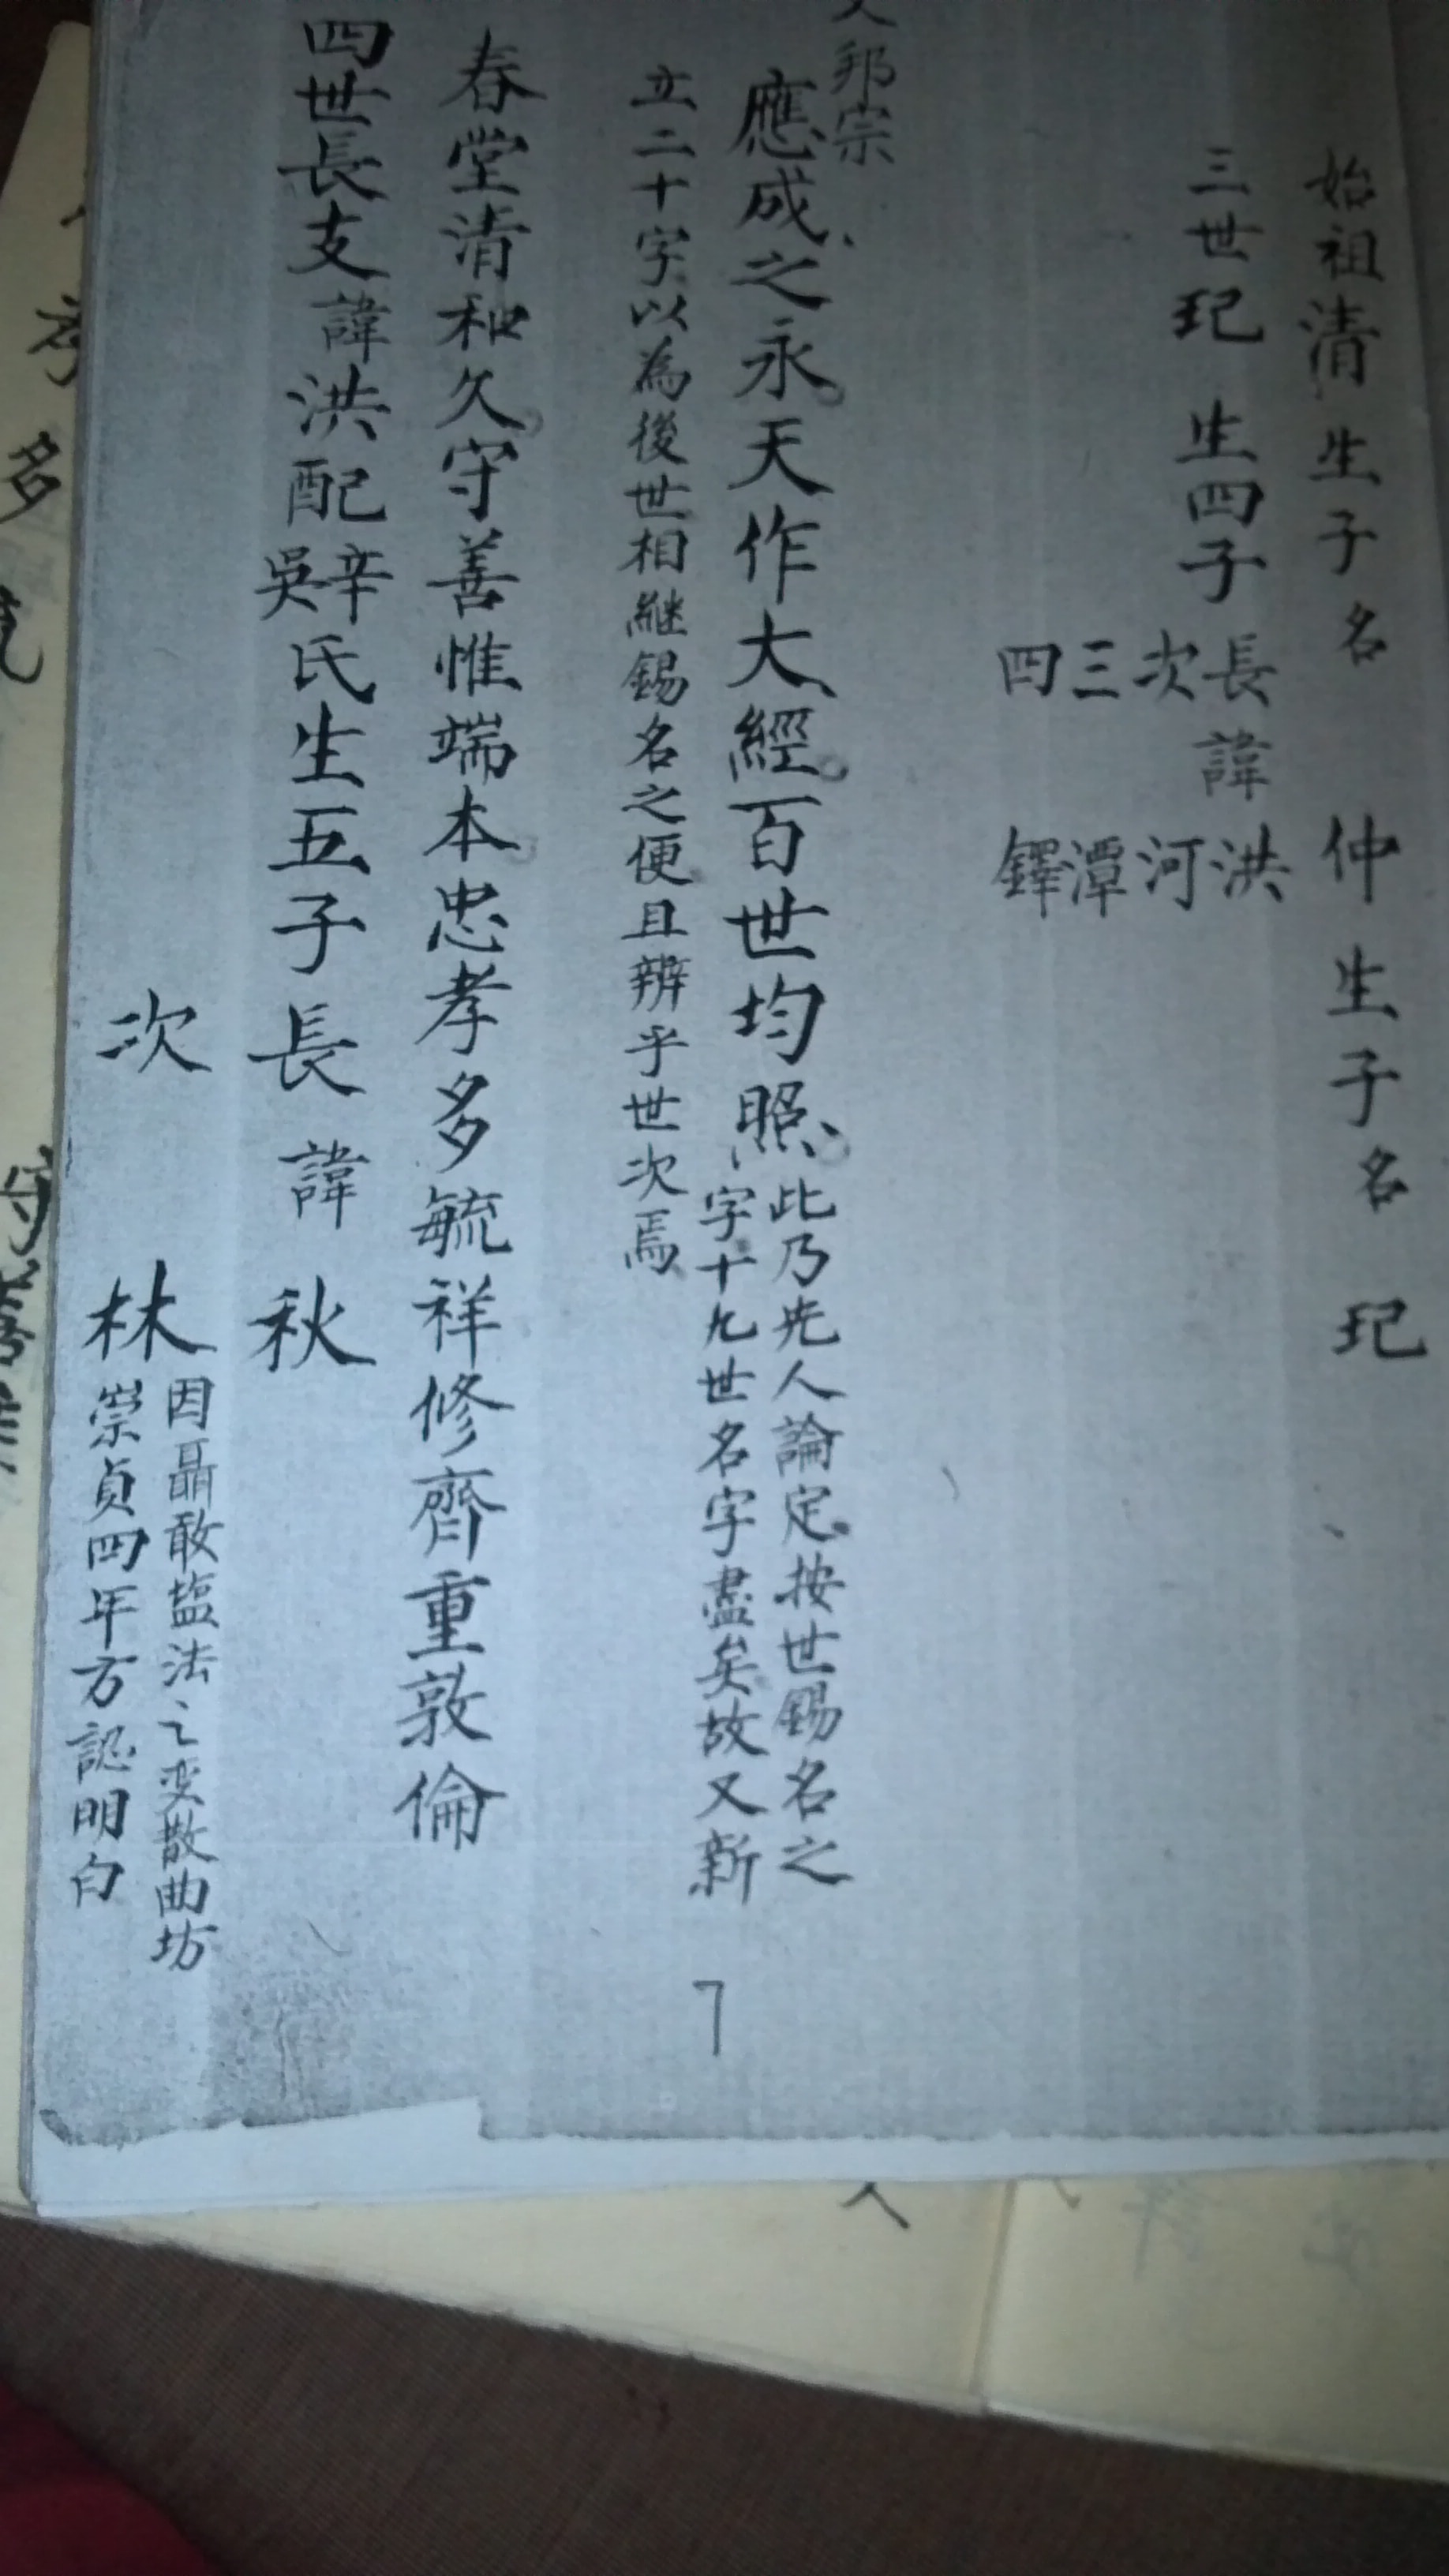 始祖清生子名 仲生子名 玘
三世玘 生四子 長諱 洪
次 河
三 潭
四 鐸
邦宗
應成之永天作大經百世均照
此乃先人論定按世錫名之
字十九世名字盡矣故又新
立二十字以為後世相繼錫名之便且辨乎世次焉
春堂清和久守善惟端本忠孝多毓祥修齊重敦倫
四世長支諱洪配辛吳氏生五子長諱 秋
次 林
因聶敢塩法之变散曲坊
崇貞四年方認明白
7
孝
多
毓
守
善
惟